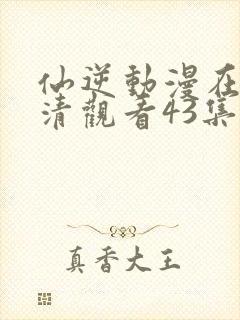 仙逆動漫在
清觀看43集
真香大王